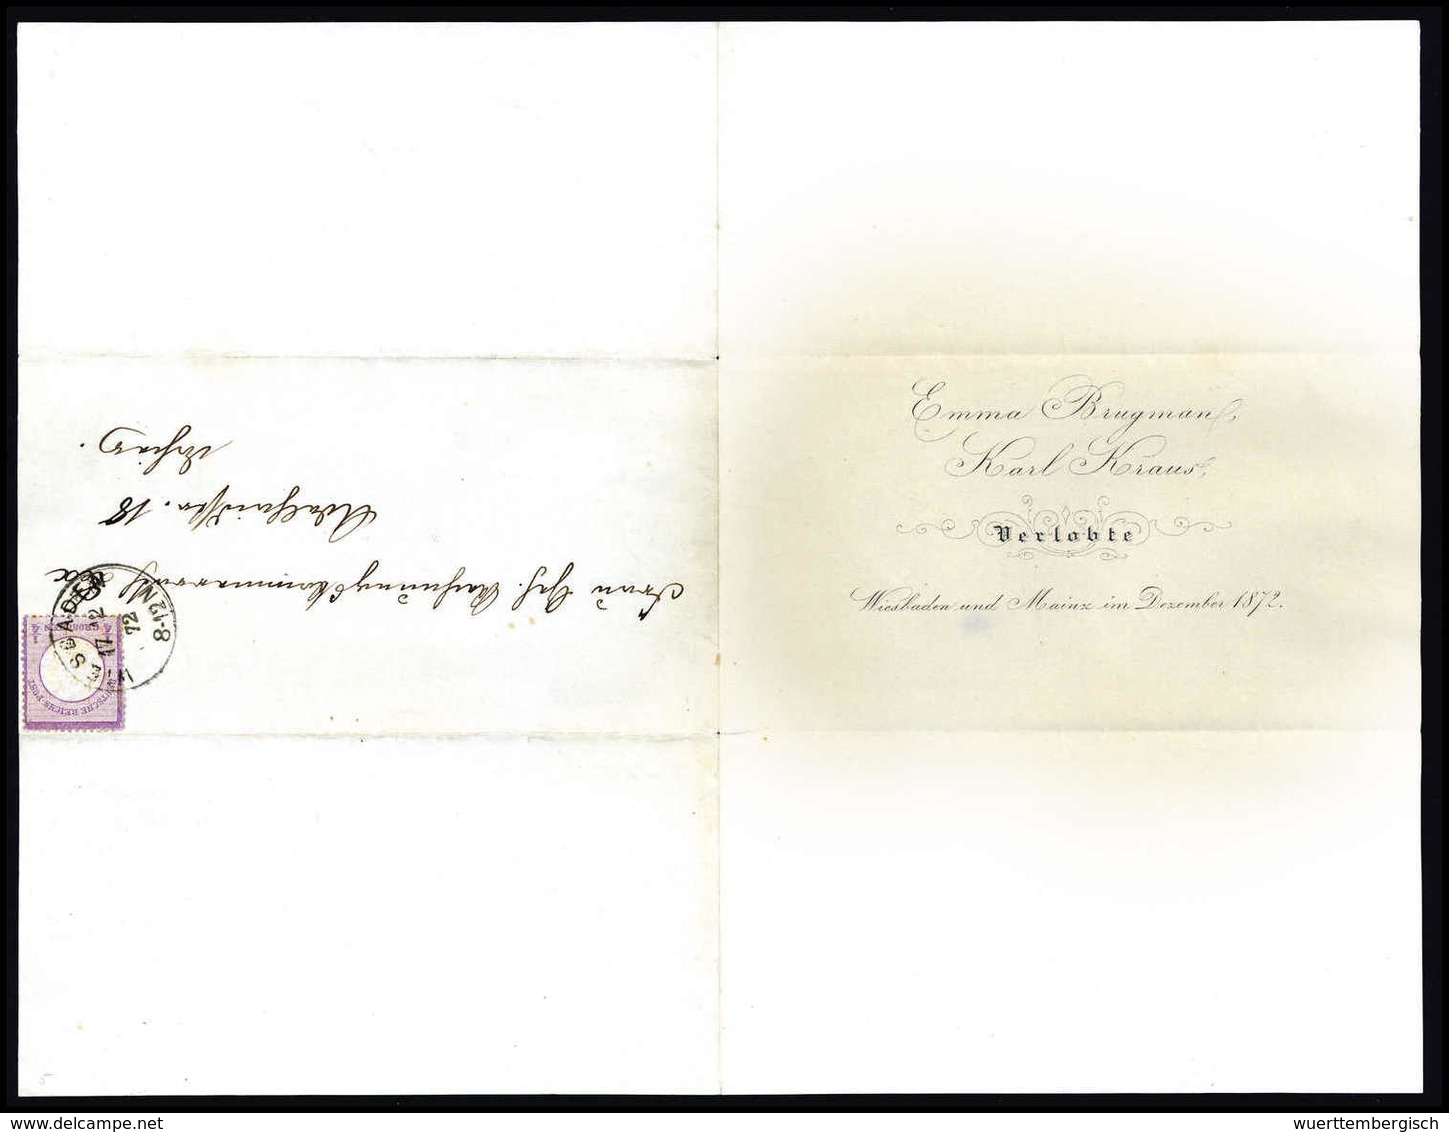 Emma Brugman,
Karl Kraus,
Verlobte
Wiesbaden und Mainz im Dezember 1872.
Frau Geh. Rechnungskommissar
Adelheidstr. 18
¼ GROSCHEN ¼
DEUTSCHE REICHS-POST
17 12
72
8-12 N
wuerttembergisch.com